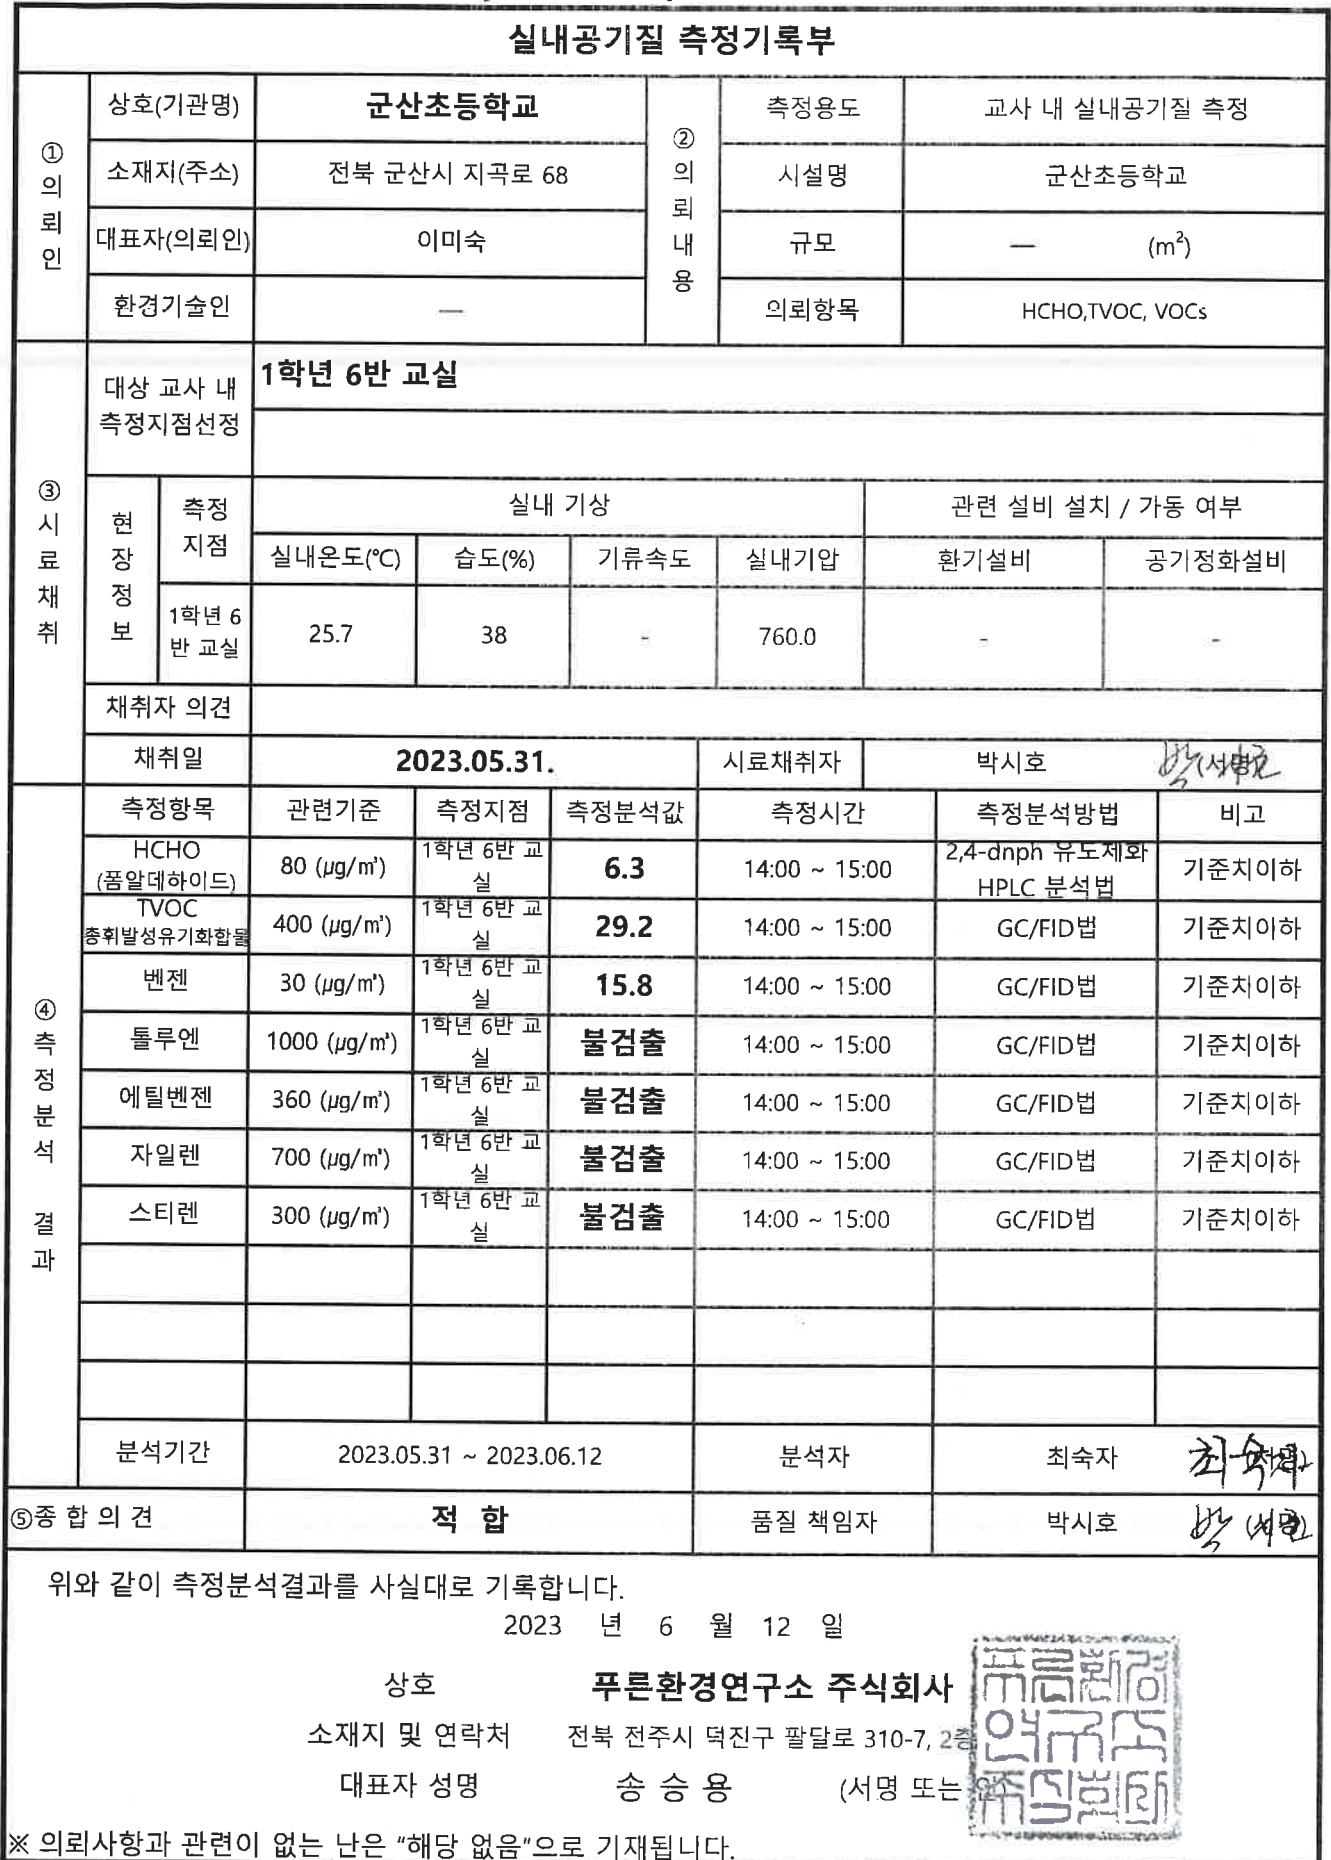 실내공기질 측정기록부
① 의뢰인
상호(기관명) 군산초등학교
소재지(주소) 전북 군산시 지곡로 68
대표자(의뢰인) 이미숙
환경기술인 —
② 의뢰내용
측정용도 교사 내 실내공기질 측정
시설명 군산초등학교
규모 — (m²)
의뢰항목 HCHO,TVOC, VOCs
③ 시료채취
대상 교사 내 측정지점선정 1학년 6반 교실
현장정보 측정지점 실내 기상 관련 설비 설치 / 가동 여부
실내온도(℃) 습도(%) 기류속도 실내기압 환기설비 공기정화설비
1학년 6반 교실 25.7 38 - 760.0 - -
채취자 의견
채취일 2023.05.31. 시료채취자 박시호 (서명)
④ 측정분석 결과
측정항목 관련기준 측정지점 측정분석값 측정시간 측정분석방법 비고
HCHO (폼알데하이드) 80 (μg/㎥) 1학년 6반 교실 6.3 14:00 ~ 15:00 2,4-dnph 유도체화 HPLC 분석법 기준치이하
TVOC 총휘발성유기화합물 400 (μg/㎥) 1학년 6반 교실 29.2 14:00 ~ 15:00 GC/FID법 기준치이하
벤젠 30 (μg/㎥) 1학년 6반 교실 15.8 14:00 ~ 15:00 GC/FID법 기준치이하
톨루엔 1000 (μg/㎥) 1학년 6반 교실 불검출 14:00 ~ 15:00 GC/FID법 기준치이하
에틸벤젠 360 (μg/㎥) 1학년 6반 교실 불검출 14:00 ~ 15:00 GC/FID법 기준치이하
자일렌 700 (μg/㎥) 1학년 6반 교실 불검출 14:00 ~ 15:00 GC/FID법 기준치이하
스티렌 300 (μg/㎥) 1학년 6반 교실 불검출 14:00 ~ 15:00 GC/FID법 기준치이하
분석기간 2023.05.31 ~ 2023.06.12 분석자 최숙자 (서명)
⑤종 합 의 견 적 합 품질 책임자 박시호 (서명)
위와 같이 측정분석결과를 사실대로 기록합니다.
2023 년 6 월 12 일
상호 푸른환경연구소 주식회사
소재지 및 연락처 전북 전주시 덕진구 팔달로 310-7, 2층
대표자 성명 송 승 용 (서명 또는 인)
※ 의뢰사항과 관련이 없는 난은 "해당 없음"으로 기재됩니다.